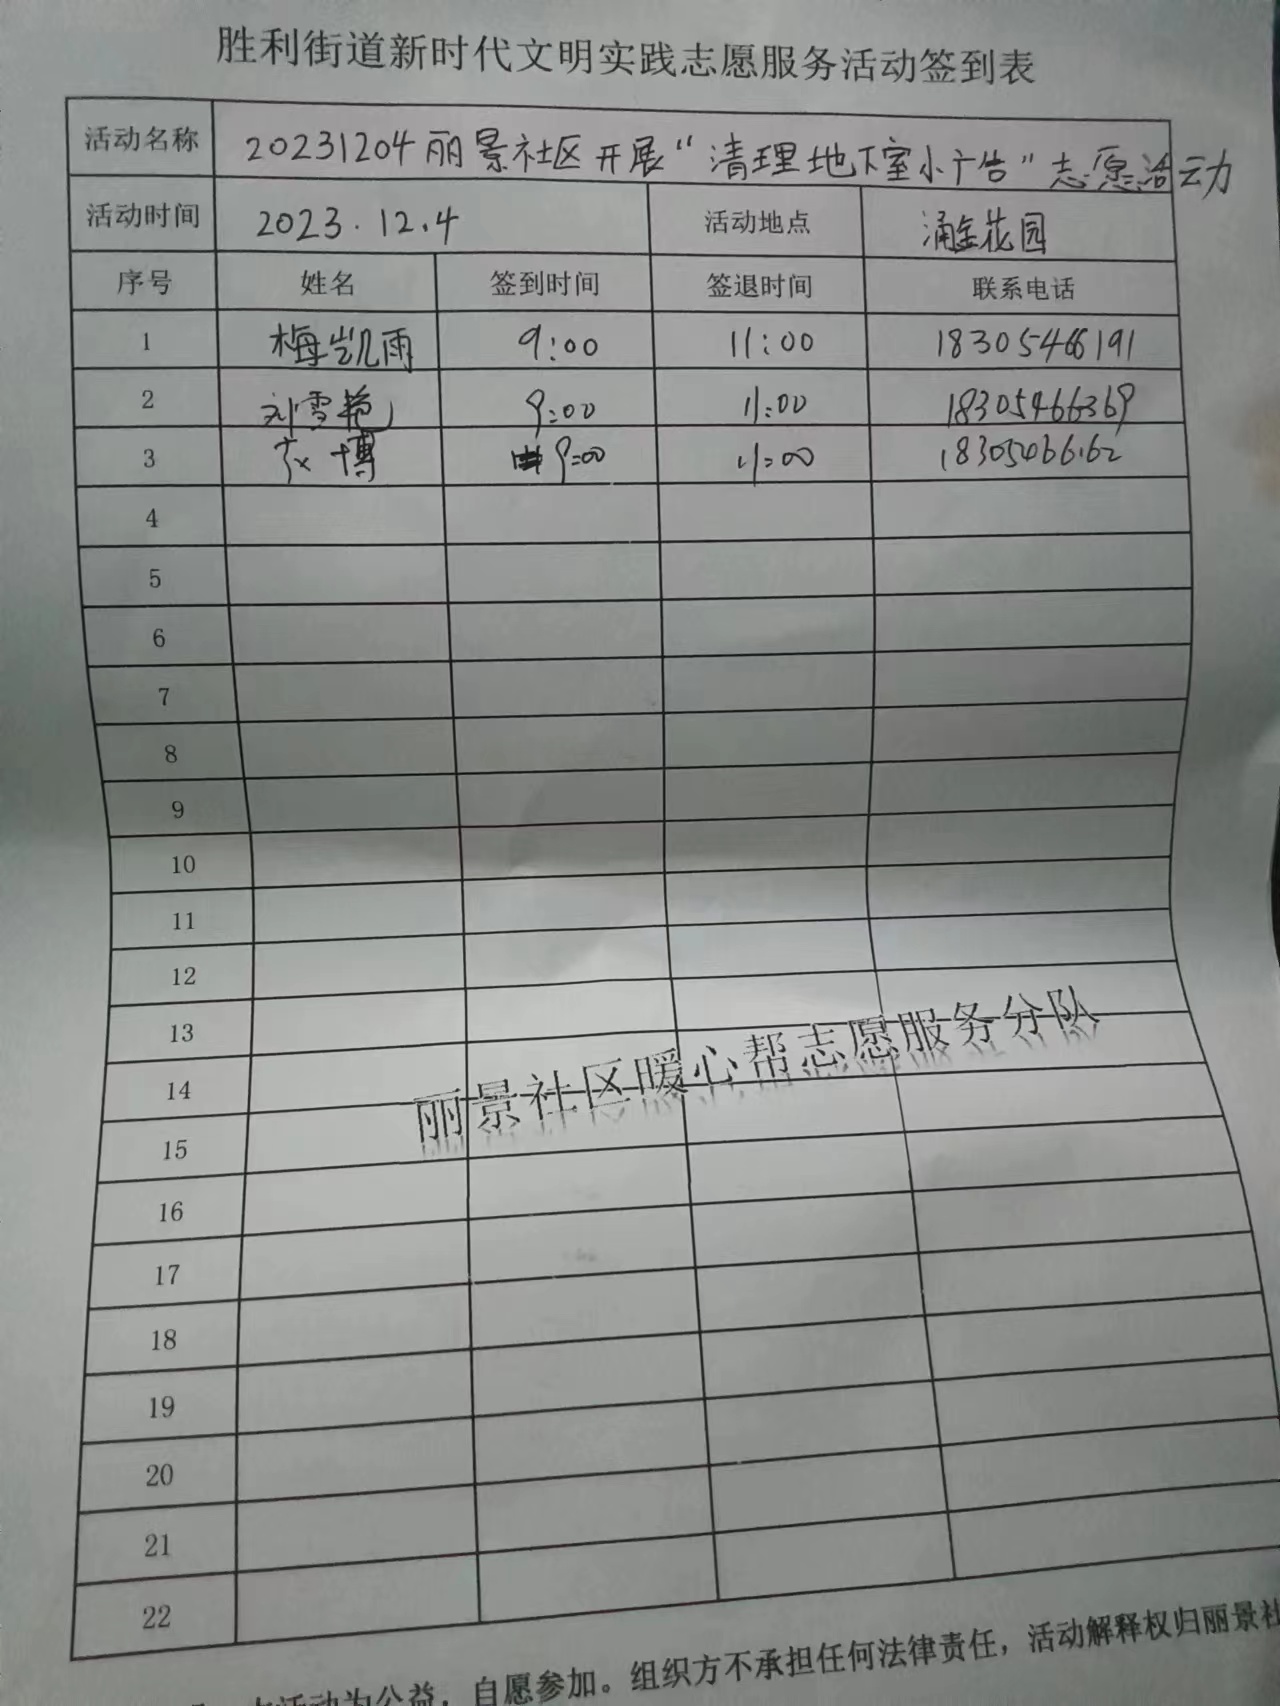 胜利街道新时代文明实践志愿服务活动签到表
活动名称 20231204丽景社区开展“清理地下室小广告”志愿活动
活动时间 2023.12.4 活动地点 涌金花园
序号 姓名 签到时间 签退时间 联系电话
1 梅凯雨 9:00 11:00 18305466191
2 刘雪艳 9:00 11:00 18305466369
3 博 9:00 11:00
4
5
6
7
8
9
10
11
12
13
14
15
16
17
18
19
20
21
22
丽景社区暖心帮志愿服务分队
活动为公益，自愿参加。组织方不承担任何法律责任，活动解释权归丽景社